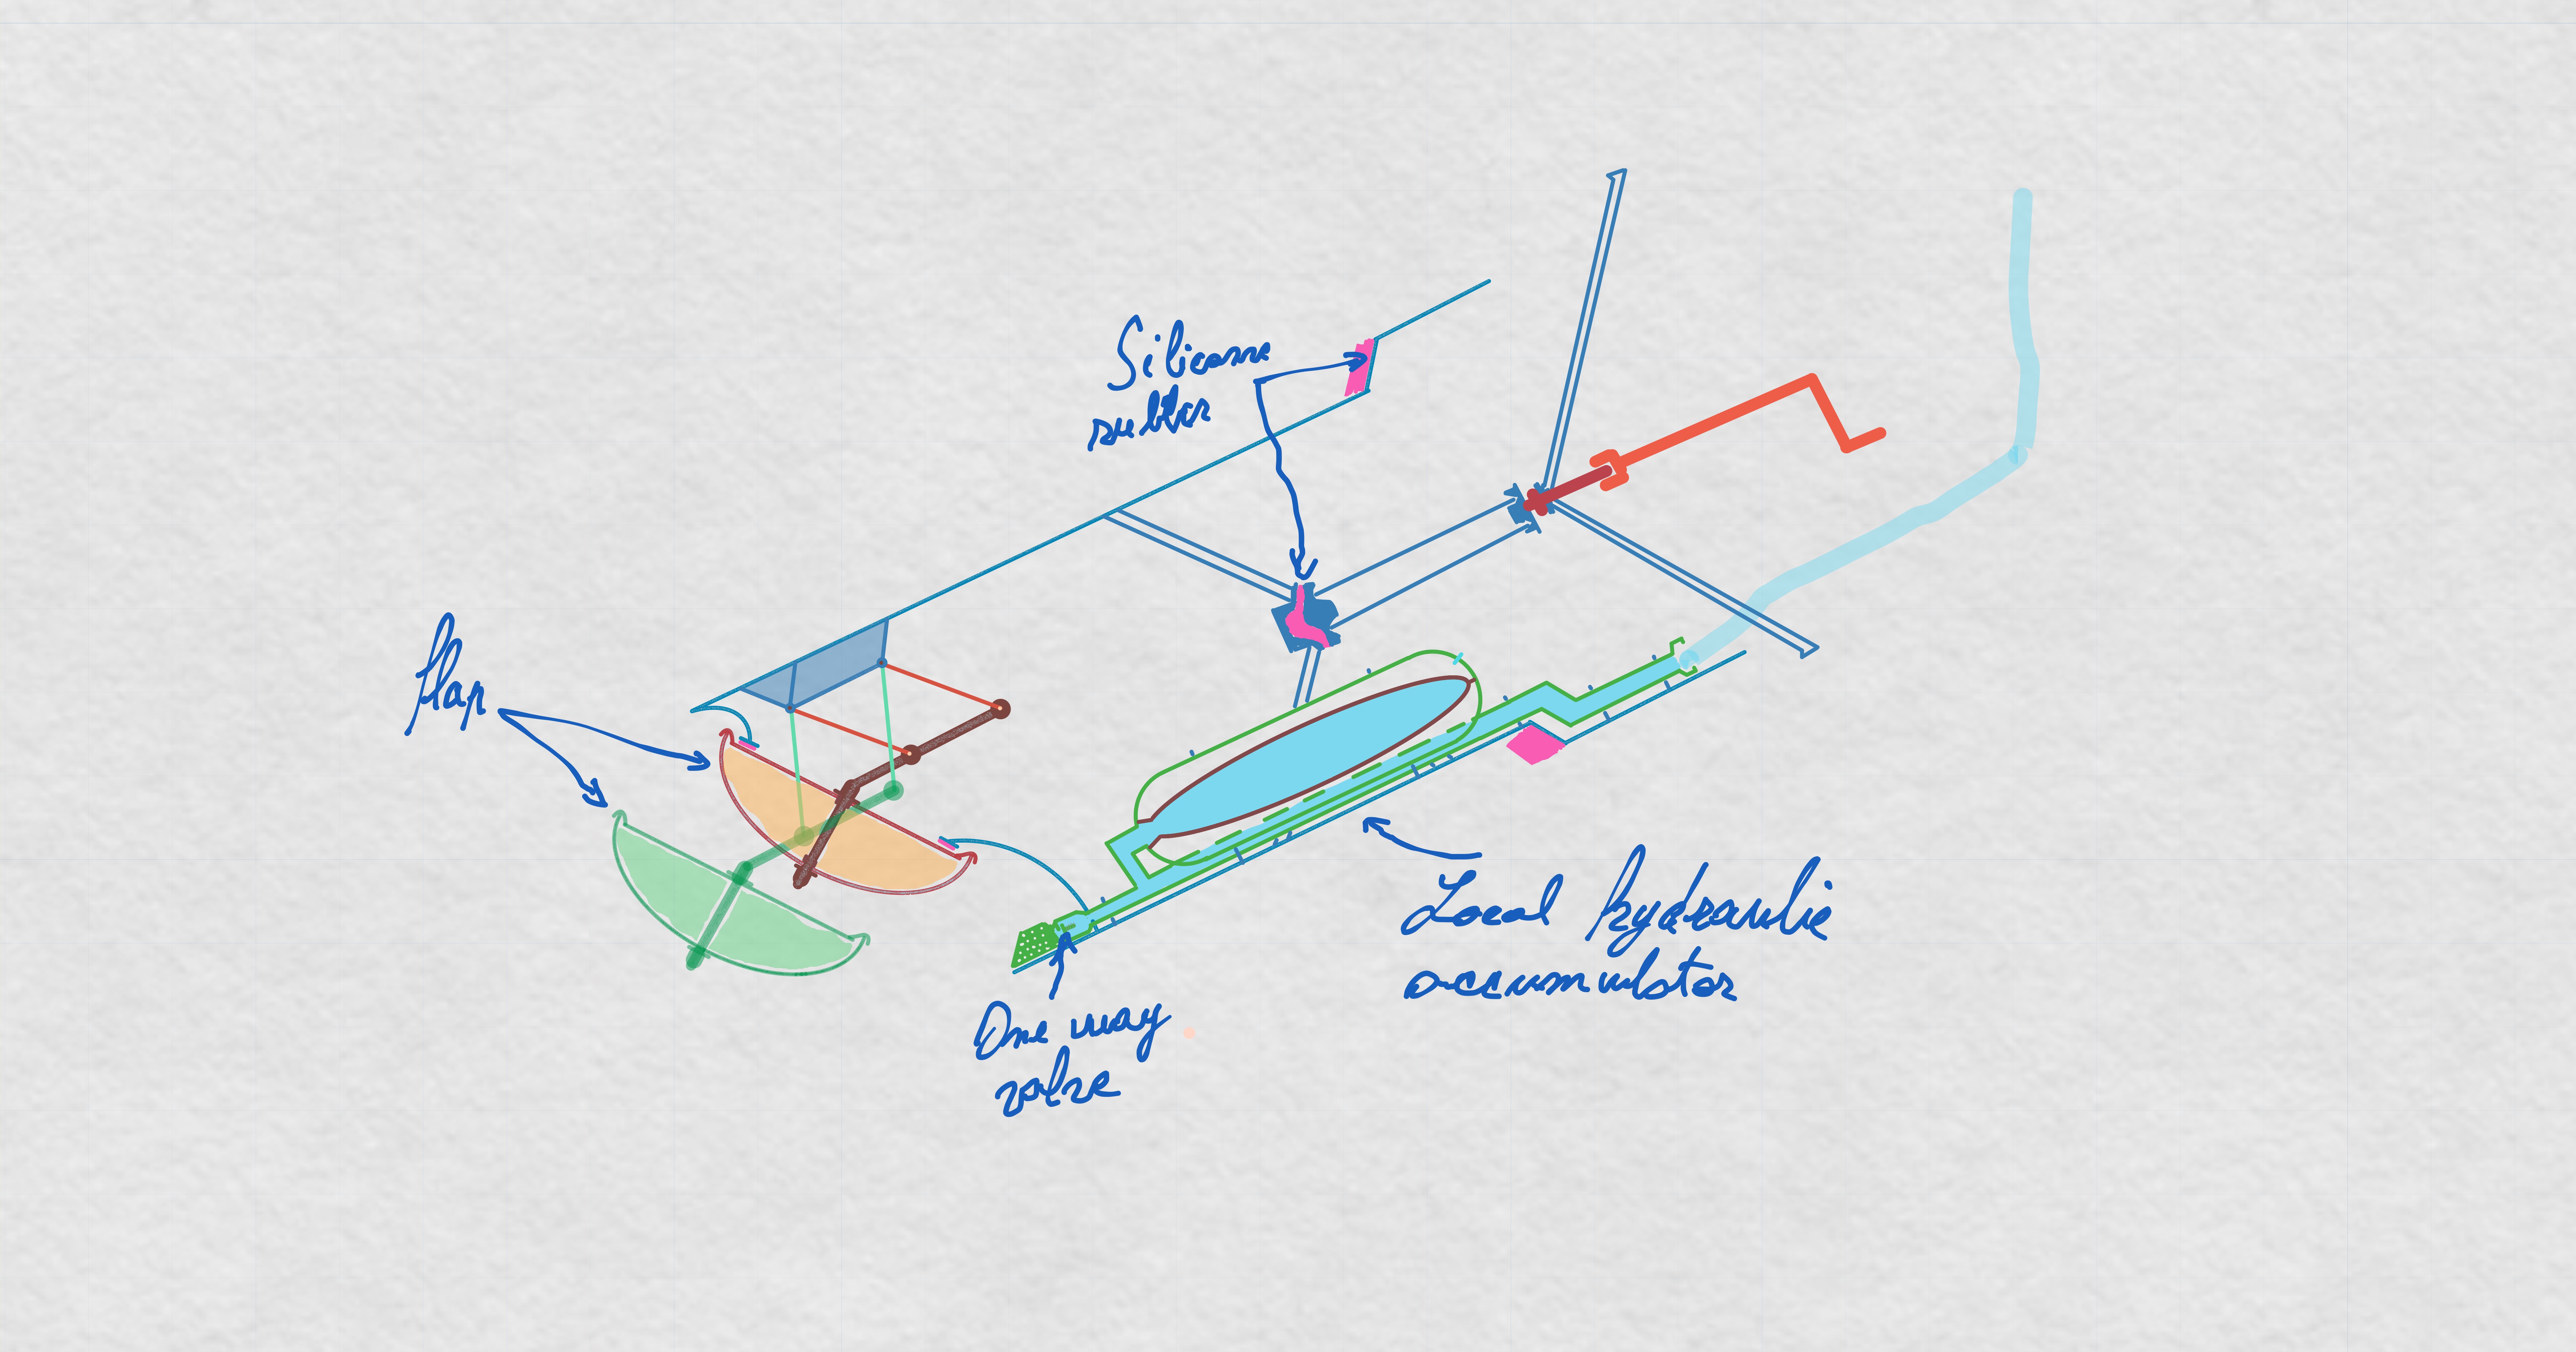 Silicone
rubber
flap
Local hydraulic
accumulator
One way
valve